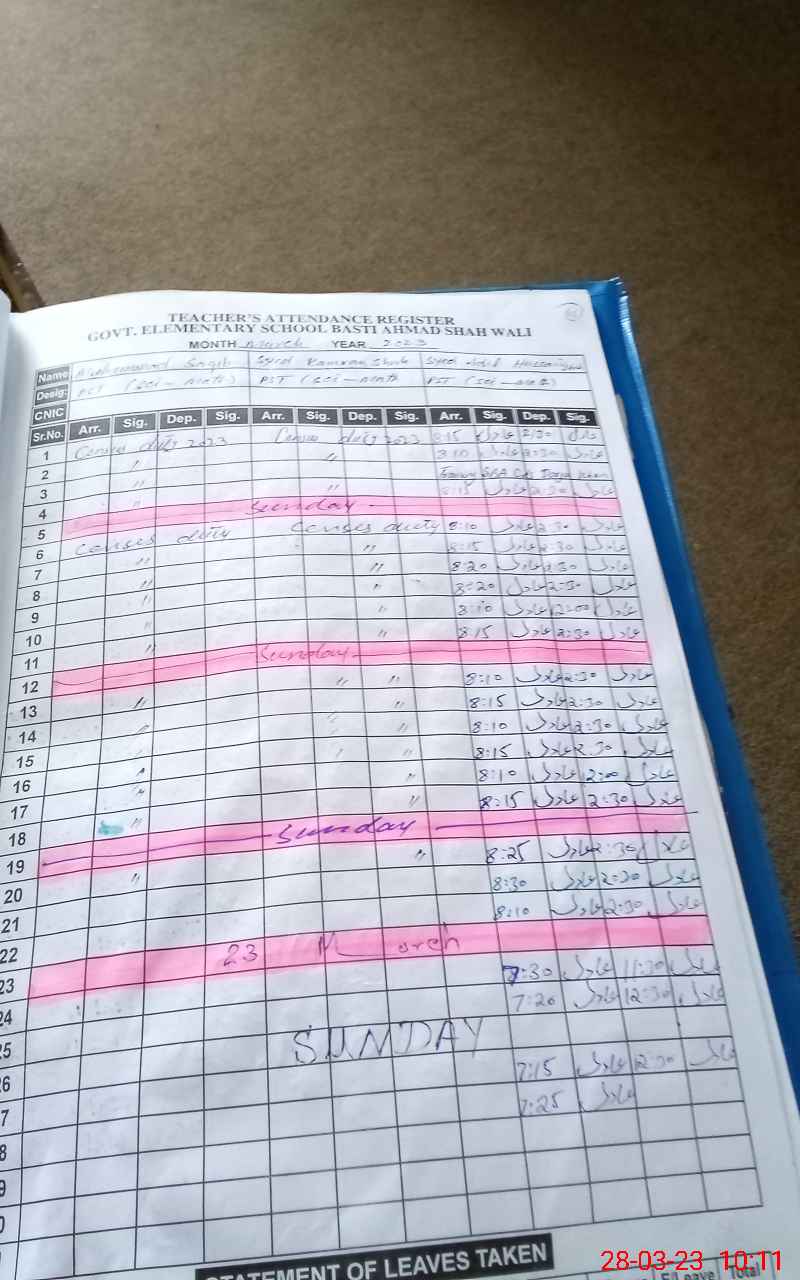 TEACHER'S ATTENDANCE REGISTER
GOVT. ELEMENTARY SCHOOL BASTI AHMAD SHAH WALI
MONTH March YEAR 2023
Name Muhammad Saqib Syed Kamran Shah Syed Hassan
Desig: PST (Sci - Math) PST (Sci - Math PST (Sci - Math)
CNIC
Sr.No. Arr. Sig. Dep. Sig. Arr. Sig. Dep. Sig. Arr. Sig. Dep. Sig.
1 Census duty 2023 Census duty 2023 8:15 عادل 2:30 عادل
2 〃 〃 8:10 عادل 2:30 عادل
3 〃
4 〃 〃 8:15 عادل 2:30 عادل
5 Sunday
6 Censes duty Censes duty 8:10 عادل 2:30 عادل
7 〃 〃 8:15 عادل 2:30 عادل
8 〃 〃 8:20 عادل 2:30 عادل
9 〃 〃 8:20 عادل 2:30 عادل
10 〃 〃 8:10 عادل 12:00 عادل
11 〃 〃 8:15 عادل 2:30 عادل
12 Sunday
13 〃 〃 〃 8:10 عادل 2:30 عادل
14 〃 〃 〃 8:15 عادل 2:30 عادل
15 〃 〃 〃 8:10 عادل 2:30 عادل
16 〃 〃 〃 8:15 عادل 2:30 عادل
17 〃 〃 8:10 عادل 12:00 عادل
18 〃 〃 8:15 عادل 2:30 عادل
19 Sunday
20 〃 〃 8:25 عادل 2:30 عادل
21 8:30 عادل 2:30 عادل
22 8:10 عادل 2:30 عادل
23 23 March
24 7:30 عادل 11:30 عادل
25 7:20 عادل 12:30 عادل
26 SUNDAY
7 7:15 عادل 12:30 عادل
8 7:25 عادل
9
0
STATEMENT OF LEAVES TAKEN
Leave Total
28-03-23 10:11